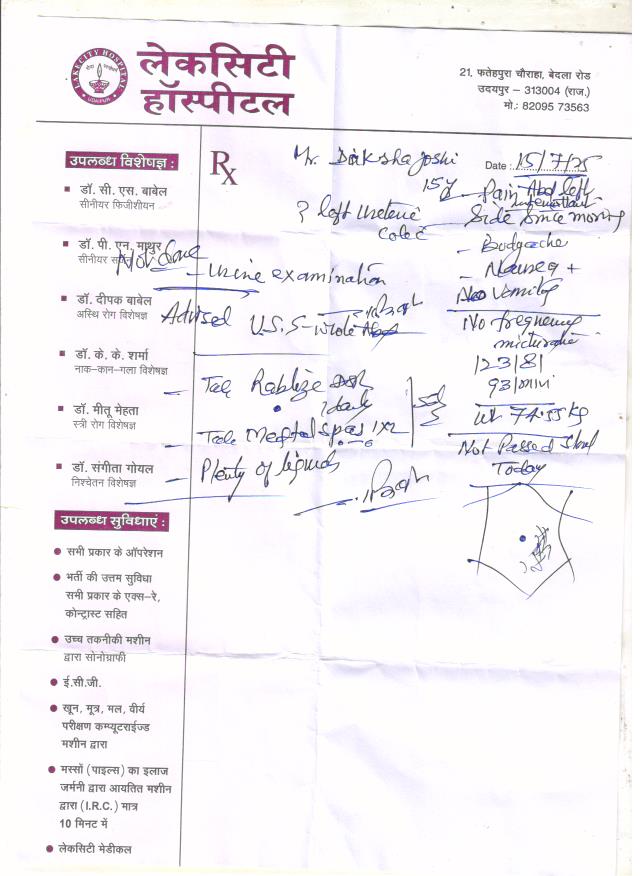 LAKECITY HOSPITAL
UDAIPUR
लेकसिटी
हॉस्पीटल
21, फतेहपुरा चौराहा, बेदला रोड
उदयपुर – 313004 (राज.)
मो.: 82095 73563
उपलब्ध विशेषज्ञ :
डॉ. सी. एस. बाबेल
सीनीयर फिजीशीयन
डॉ. पी. एन. माथुर
सीनीयर
डॉ. दीपक बाबेल
अस्थि रोग विशेषज्ञ
डॉ. के. के. शर्मा
नाक-कान-गला विशेषज्ञ
डॉ. मीतू मेहता
स्त्री रोग विशेषज्ञ
डॉ. संगीता गोयल
निश्चेतन विशेषज्ञ
उपलब्ध सुविधाएं :
सभी प्रकार के ऑपरेशन
भर्ती की उत्तम सुविधा
सभी प्रकार के एक्स-रे,
कोन्ट्रास्ट सहित
उच्च तकनीकी मशीन
द्वारा सोनोग्राफी
ई.सी.जी.
खून, मूत्र, मल, वीर्य
परीक्षण कम्प्यूटराईज्ड
मशीन द्वारा
मस्सों (पाइल्स) का इलाज
जर्मनी द्वारा आयतित मशीन
द्वारा (I.R.C.) मात्र
10 मिनट में
लेकसिटी मेडीकल
Rx
Mr. Daksha Joshi
Date : 15/7/25
15y
? left ureteric
colic
- urine examination
Advised U.S.S - whole Abd
- Tab Rablize DSR
1 daily
- Tab Meftal Spas 1x2
- Plenty of liquids
- Pain Abd left
intermittent
Side Since morning
- Bodyache
- Nausea +
No Vomiting
No frequency
micturition
123/81
93/min
wt 74.55 kg
Not Passed Stool
Today